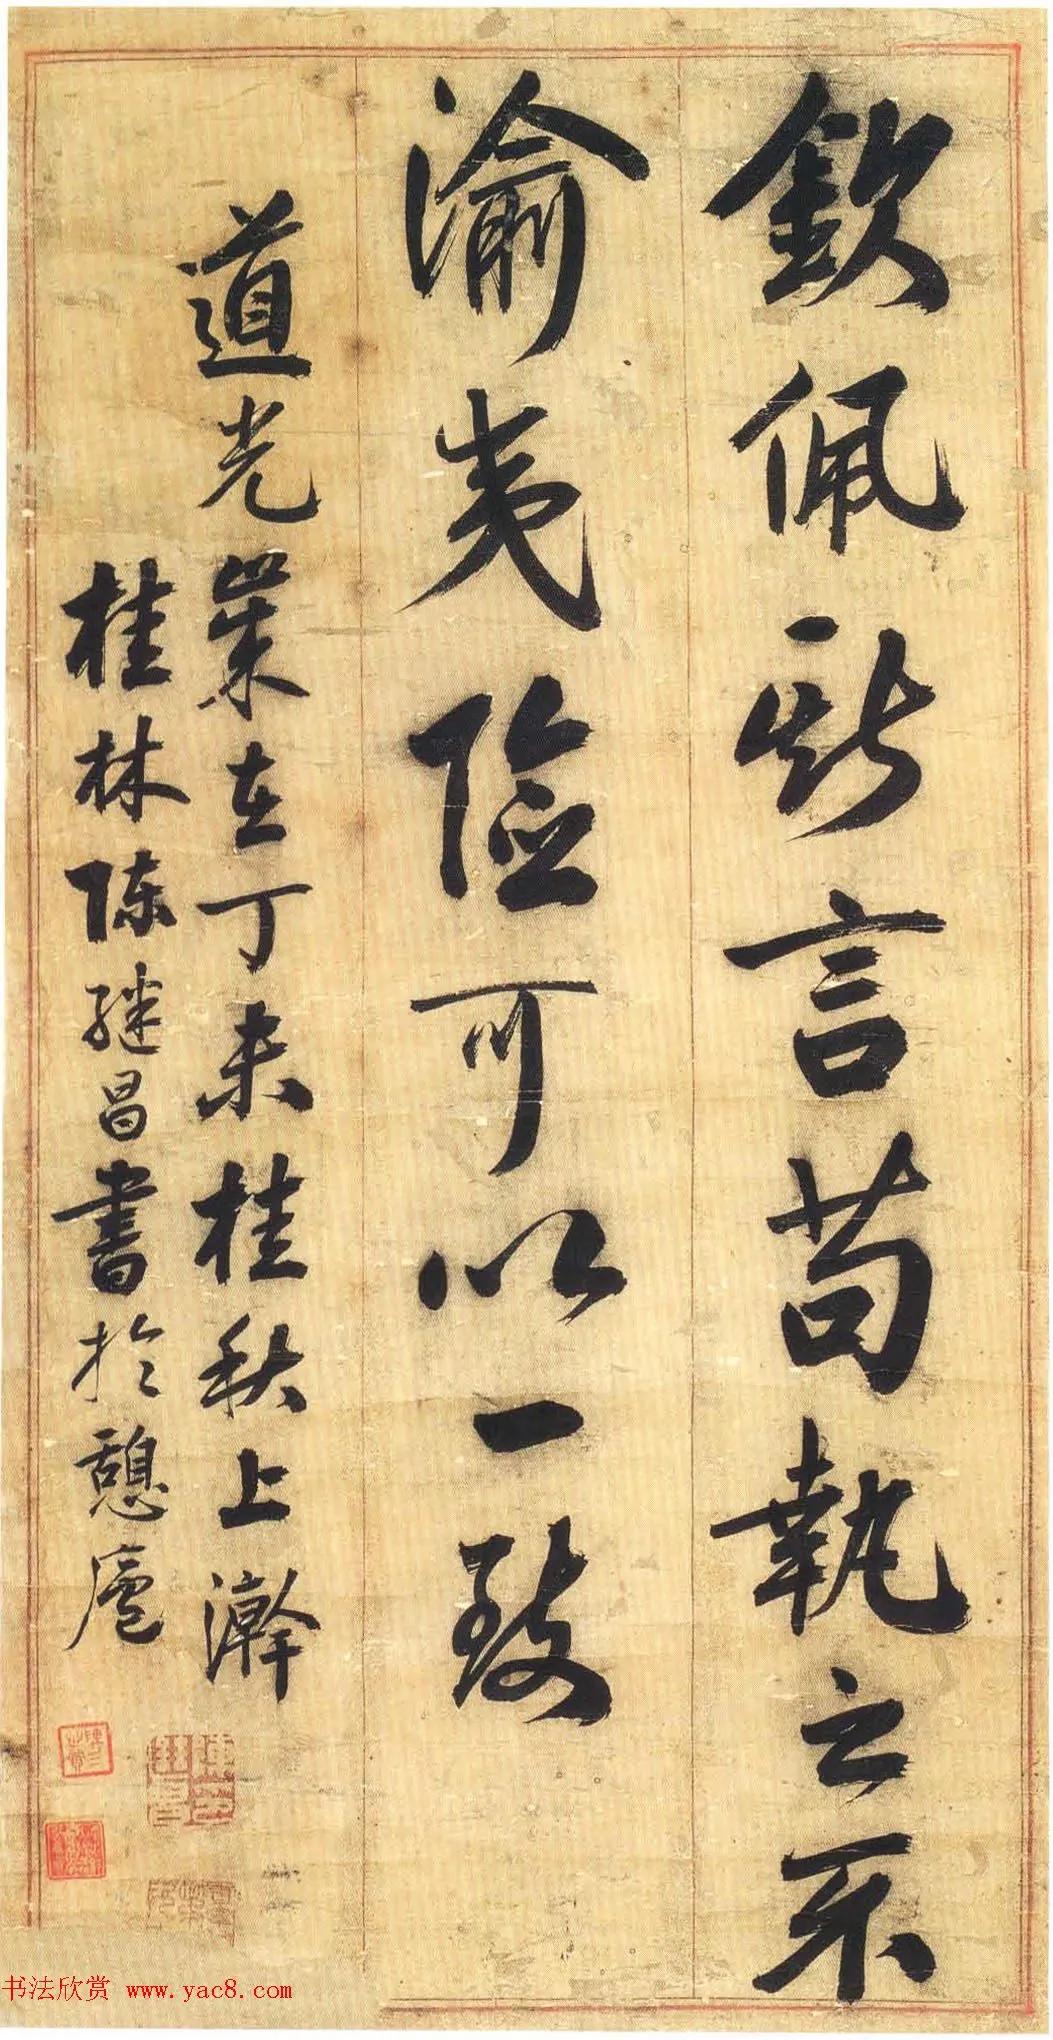 欽佩斯言苟執之不
渝夷險可以一致
道光歲在丁未桂秋上澣
桂林陳継昌書於憩廬
书法欣赏 www.yac8.com